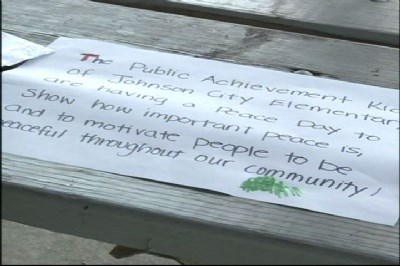 The Public Achievement Kid
of Johnson City Elementary
are having a Peace Day to
Show how important peace is,
and to motivate people to be
peaceful throughout our community!